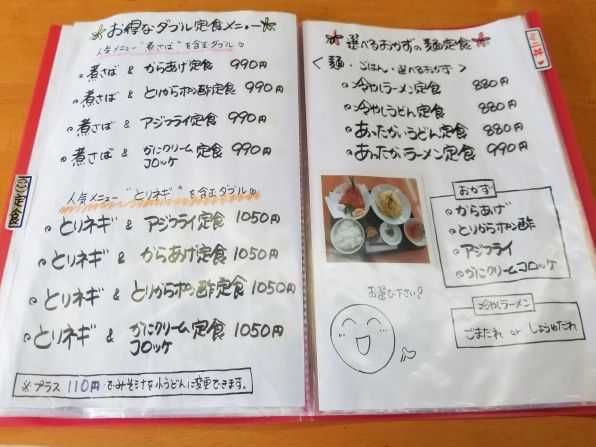 お得なダブル定食メニュー
人気メニュー"煮さば"を含むダブル
煮さば & からあげ定食 990円
煮さば & とりからポン酢定食 990円
煮さば & アジフライ定食 990円
煮さば & かにクリームコロッケ定食 990円
人気メニュー"とりネギ"を含むダブル
とりネギ & アジフライ定食 1050円
とりネギ & からあげ定食 1050円
とりネギ & とりからポン酢定食 1050円
とりネギ & かにクリームコロッケ定食 1050円
※プラス 110円でみそ汁を小うどんに変更できます。
定食
選べるおかずの麺定食
<麺・ごはん・選べるおかず>
冷やしラーメン定食 880円
冷やしうどん定食 880円
あったかいうどん定食 880円
あったかラーメン定食 990円
おかず
からあげ
とりからポン酢
アジフライ
かにクリームコロッケ
お選び下さい
冷やしラーメン
ごまだれ or しょうゆだれ
ミニ丼